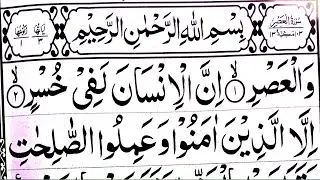 سُورَةُ الْعَصْرِ
بِسْمِ اللهِ الرَّحْمٰنِ الرَّحِيْمِ
وَالْعَصْرِ ۙ﴿۱﴾ اِنَّ الْاِنْسَانَ لَفِیْ خُسْرٍ ۙ﴿۲﴾
اِلَّا الَّذِیْنَ اٰمَنُوْا وَعَمِلُوا الصّٰلِحٰتِ